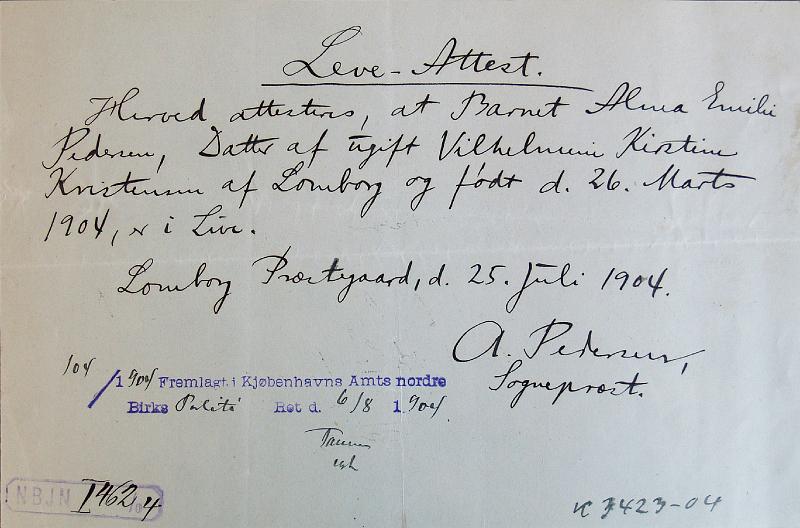 Leve-Attest.
Herved attesteres, at Barnet Alma Emilie
Pedersen, Datter af ugift Vilhelmine Kirstine
Kristensen af Lomborg og født d. 26. Marts
1904, er i Live.
Lomborg Præstegaard, d. 25. Juli 1904.
A. Pedersen,
Sognepræst.
104
/1904 Fremlagt i Kjøbenhavns Amts nordre
Birks Politi Ret d. 6/8 1904
NBJN I 462 4
K 3423-04